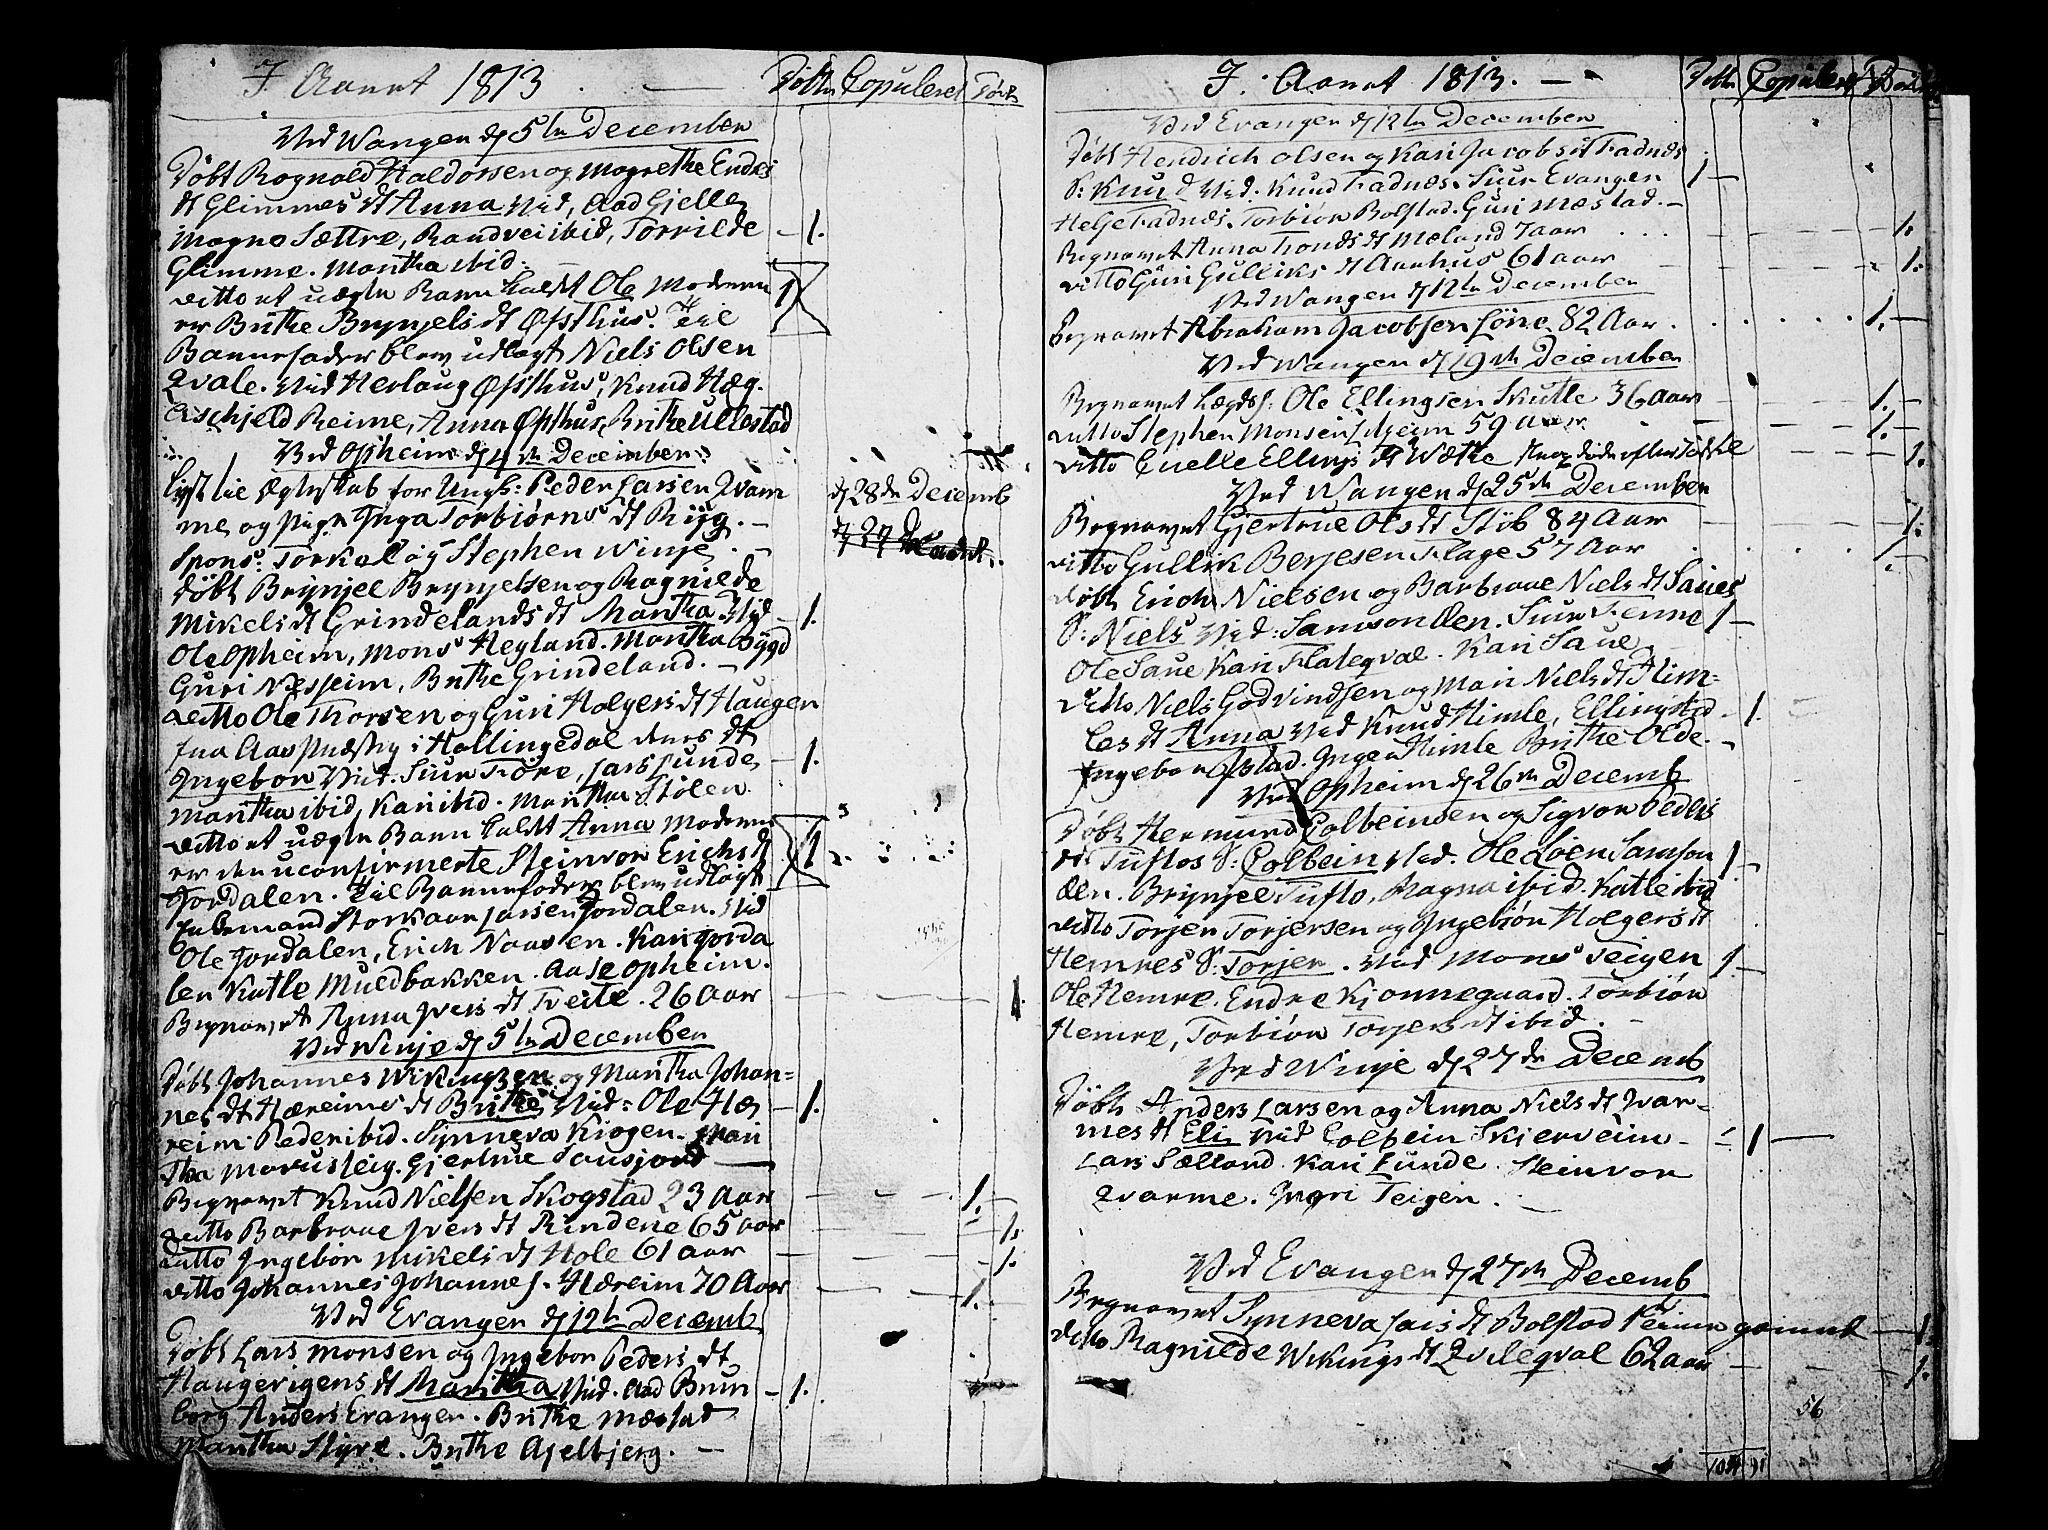 I Aaret 1813. — Døbte Copulered Døde
Ved Wangen d 5te December
Døbt Rognald Haldorsen og Magrethe Endes
dt Glimmes dt Anna Vid, Aad Gjelle
Magne Sættre, Randvei ibid, Torrilde — 1.
Glimme. Martha ibid.
ditto et uægte Barn kaldt Ole Moderen 1
er Brithe Brynjels dt Øfsthus. Til
Barnefader blev udlagt Niels Olsen
Qvale. Vid Herlaug Øfsthus, Knud Hæg.
Aschjeld Reime, Anna Øfsthus, Brithe Ullestad
Ved Opheim d 4de December
lyst til Ægteskab for Ungk: Peder Larsen Qvam d 28de Decemb
me og Pige Inga Torbiørns dt Ryg. —
Spons: Torkel og Stephen Winje.
døbt Brynjel Brynjelsen og Ragnilde
Mikels dt Grindelands dt Martha Vid — 1.
Ole Opheim, Mons Hegland. Martha Bygd
Guri Nesheim, Brithe Grindeland. —
ditto Ole Thorsen og Guri Holgers dt Haugen
fra Aas Præsteg i Hallingedal deres dt
Ingebor Vid. Siur Føre, Lars Lunde — 1.
Maritha ibid, Kari ibid. Maritha Stølen.
ditto et uægte Barn kaldt Anna Moderen 1
er den uconfirmerte Steinvor Erichs dt
Jordalen. Til Barnefader blev udlagt
Enkemand Storkaar Larsen Jordalen. Vid
Ole Jordalen, Erich Naasen. Kari Jorda
len Katle Muldbakken. Aase Opheim.
Begravet Anna Ivers dt Tveite. 26 Aar 1.
Ved Winje d 5te December
Døbt Johannes Wikingsen og Maritha Johan=
nes dt Hæreims dt Brithe Vid: Ole Hæ — 1.
reim Peder ibid. Synneva Kiogen. Mari
tha . Gjertrue
Begravet Knud Nielsen Skogstad 23 Aar — 1.
ditto Barbraae Ivers dt Rindene 65 aar 1.
ditto Ingebor Mikels dt Hole 61 aar 1.
ditto Johannes Johannes. Hæreim 70 Aar — 1.
Ved Evanger d 12te Decemb
Døbt Lars Monsen og Ingebor Peders dt
Haugerigens dt Maritha Vid. Aad Brun — 1.
borg Anders Evanger. Brithe Mæstad
Martha Styve. Brithe Ajelbjerg. —
I Aaret 1813. — Døbte Copulered
Ved Evanger d 12te December
Døbt Hendrich Olsen og Kari Jacobs dt Fadnes
S: Knud Vid. Knud Fadnæs. Siur Evanger 1 —
Helje Fadnæs. Torbiør Bolstad. Guri Mæstad. —
Begravet Anna Tronds dt Mæland 7 aar 1.
ditto Guri Gulliks dt Aarhus 61 aar 1.
Ved Wangen d 12te December
Begravet Abraham Jacobsen Løne 82 Aar. 1. —
Ved Wangen d 19de December
Begravet Lægds: Ole Ellingsen Skutle 36 Aar 1. —
ditto Stephen Monsen 59 Aar 1. —
ditto Enelle Ellings dt Wæthe strax døde efter 1.
Ved Wangen d 25de December
Begravet Gjertrue Ols dt Støb 84 Aar 1.
ditto Gullik Berjesen Flage 57 Aar 1.
døbt Erich Nielsen og Barbraae Niels dt Saues
S: Niels Vid: Samson Ølen. Siur Renne 1 —
Ole Saue Kari Flateqval. Kari Saue
ditto Niels Godvindsen og Mari Niels dt Him=
les dt Anna Vid Knud Himle, Elling 1.
Ingebor Ofstad. Inger Himle Brithe Olde. —
Ved Opheim d 26de Decemb
Døbt Hermund Colbeinsen og Sigvor Peders
dt Tuftos S: Colbein Vid. Ole Løen Samson 1 —
Ølen. Brynjel Tufto, Ragna ibid. Katle ibid
ditto Torjer Torjersen og Ingebiør Holgers dt
Hemres S: Torjer. Vid Mons Teigen 1 —
Ole Hemre. Endre Kjonnegaard. Torbiør
Hemre, Torbiør Torjers dt ibid. —
Ved Winje d 27de Decemb
Døbt Anders Larsen og Anna Niels dt Qvar=
mes dt Eli Vid Colbein Skjerveim — 1 —
Lars Sælland. Kari Lunde. Steinvor
Qvarme. Ingri Teigen.
Ved Evanger d 27de Decemb
Begravet Synneva Lars dt Bolstad gammel — 1.
ditto Ragnilde Wikings dt Qvileqval 62 aar 1.
56